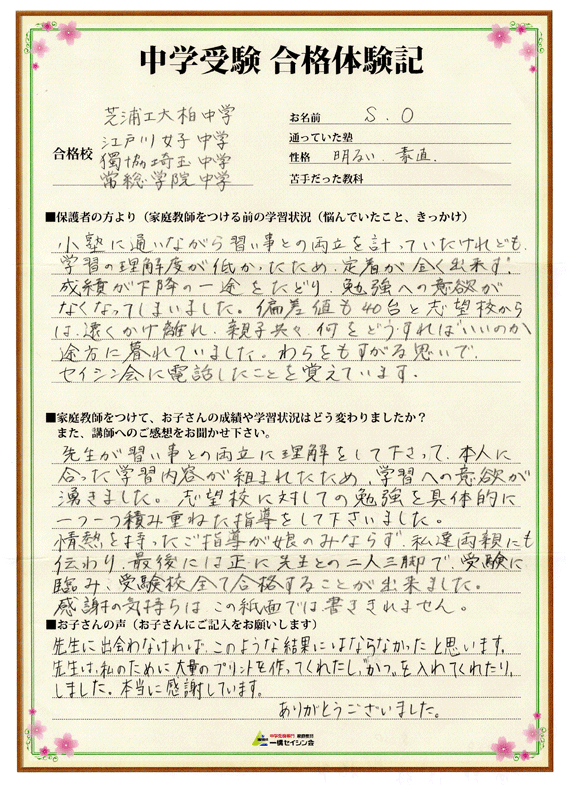 中学受験 合格体験記
合格校
芝浦工大柏中学
江戸川女子中学
獨協埼玉中学
常総学院中学
お名前 S.O
通っていた塾
性格 明るい.素直.
苦手だった教科
■保護者の方より（家庭教師をつける前の学習状況（悩んでいたこと、きっかけ）
小塾に通いながら習い事との両立を計っていたけれども、
学習の理解度が低かったため、定着が全く出来ず、
成績が下降の一途をたどり、勉強への意欲が
なくなってしまいました。偏差値も40台と志望校から
は、遠くかけ離れ、親子共々、何をどうすればいいのか
途方に暮れていました。わらをもすがる思いで、
セイシン会に電話したことを覚えています.
■家庭教師をつけて、お子さんの成績や学習状況はどう変わりましたか？
また、講師へのご感想をお聞かせ下さい。
先生が習い事との両立に理解をして下さって、本人に
合った学習内容が組まれたため、学習への意欲が
湧きました。志望校に対しての勉強を具体的に
一つ一つ積み重ねた指導をして下さいました。
情熱を持ったご指導が娘のみならず、私達両親にも
伝わり、最後には正に先生との二人三脚で、受験に
臨み、受験校全て合格することが出来ました。
感謝の気持ちは、この紙面では書ききれません。
■お子さんの声（お子さんにご記入をお願いします）
先生に出会わなければ、このような結果にはならなかったと思います。
先生は、私のために大量のプリントを作ってくれたし、"かつ"を入れてくれたり、
しました。本当に感謝しています。
ありがとうございました。
一橋セイシン会